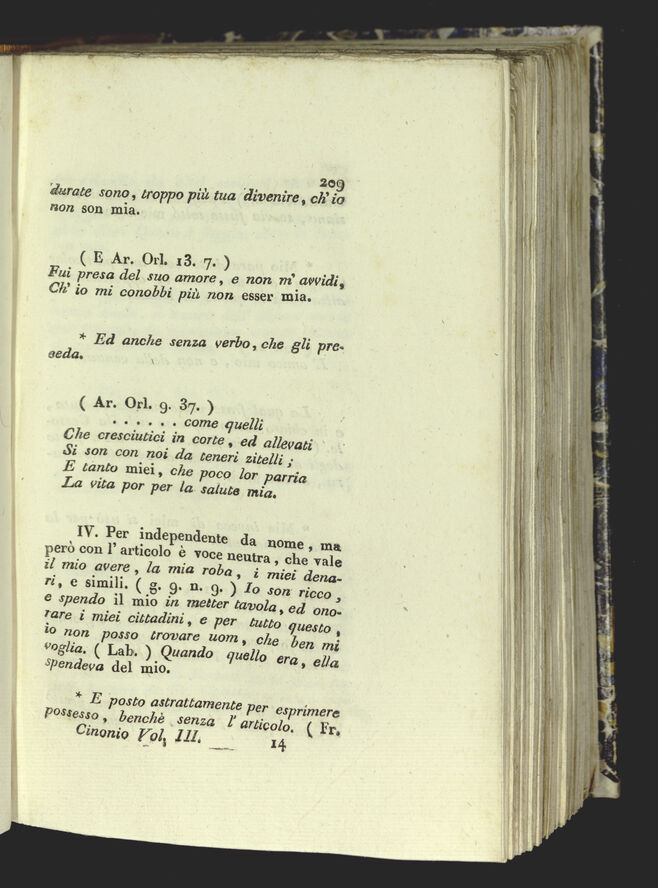 209
durate sono, troppo più tua divenire, ch' io
non son mia.
( E Ar. Orl. 13. 7. )
Fui presa del suo amore, e non m' avvidi,
Ch' io mi conobbi più non esser mia.
* Ed anche senza verbo, che gli pre-
ceda.
( Ar. Orl. 9. 37. )
. . . . . . come quelli
Che cresciutici in corte, ed allevati
Si son con noi da teneri zitelli;
E tanto miei, che poco lor parria
La vita por per la salute mia.
IV. Per independente da nome, ma
però con l' articolo è voce neutra, che vale
il mio avere, la mia roba, i miei dena-
ri, e simili. ( g. 9. n. 9. ) Io son ricco,
e spendo il mio in metter tavola, ed ono-
rare i miei cittadini, e per tutto questo,
io non posso trovare uom, che ben mi
voglia. ( Lab. ) Quando quello era, ella
spendeva del mio.
* E posto astrattamente per esprimere
possesso, benchè senza l' articolo. ( Fr.
Cinonio Vol. III. 14